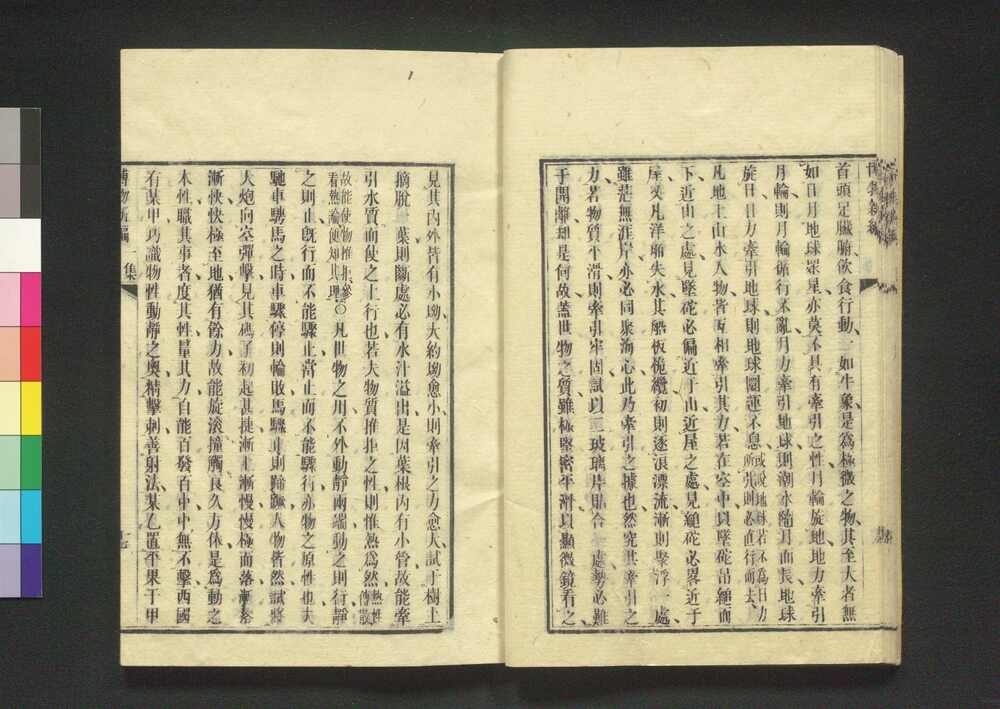 首頭足臟腑飲食行動一如牛象是爲極微之物其至大者無
如日月地球眾星亦莫不具有牽引之性月輪旋地地力牽引
月輪則月輪循行不亂月力牽引地球則潮水隨月而長地球
旋日日力牽引地球則地球圜運不息或說地球若不爲日力所引則必直行而去
凡地上山水人物皆互相牽引其力若在空中以墜砣吊繩而
下近山之處見墜砣必偏近于山近屋之處見繩砣必畧近于
屋又凡洋船失水其船板桅纜初則逐浪漂流漸則聚浮一處
雖茫無涯岸亦必同聚海心此乃牽引之據也然究其牽引之
力若物質平滑則牽引牢固試以二玻璃片貼合一處勢必難
于開離却是何故蓋世物之質雖極堅密平滑以顯微鏡看之
見其內外皆有小坳大約坳愈小則牽引之力愈大試于樹上
摘脫一葉則斷處必有水汁溢出是因葉根內有小管故能牽
引水質而使之上行也若夫物質推拒之性則惟熱爲然熱性傳散
故能使物推拒參看熱論便知其理○凡世物之用不外動靜兩端動之則行靜
之則止旣行而不能驟止當止而不能驟行亦物之原性也夫
馳車騁馬之時車驟停則輪敗馬驟止則蹄蹶人物皆然試將
大炮向空彈擊見其碼子初起甚捷漸上漸慢慢極而落漸落
漸快快極至地猶有餘力故能旋滾撞觸良久方休是爲動之
本性職其事者度其性量其力自能百發百中中無不擊西國
有某甲巧識物性動靜之奧精擊刺善射法某乙置平果于甲
博物新編一集